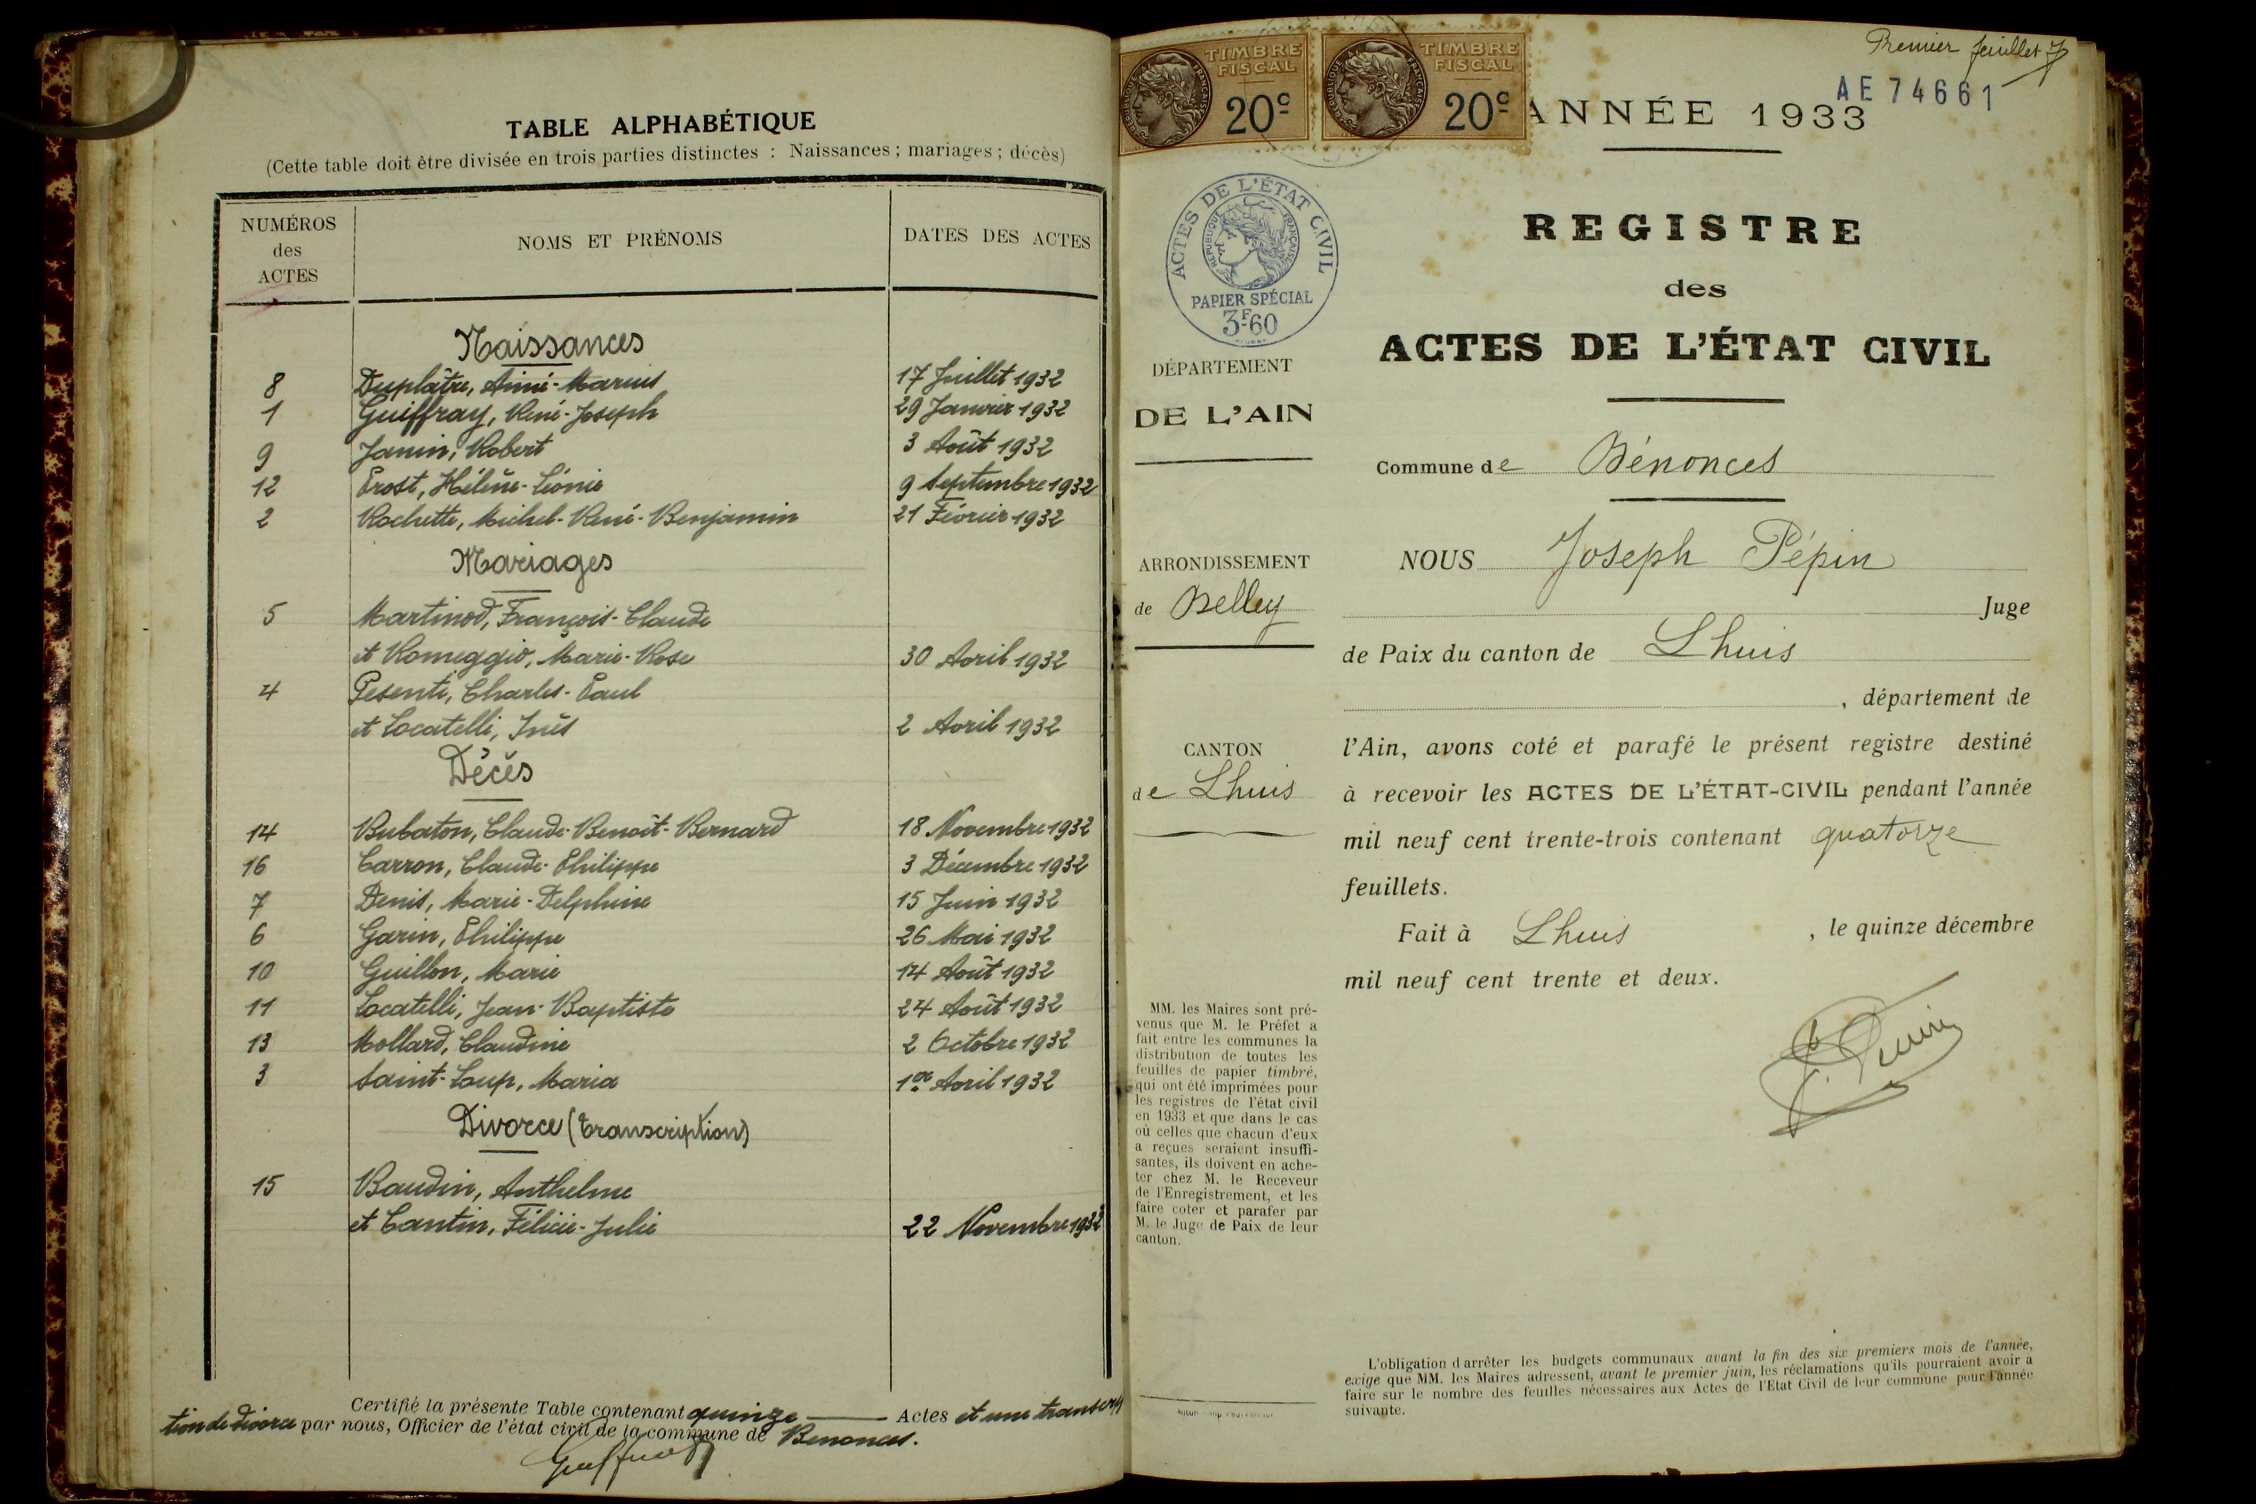 TABLE ALPHABÉTIQUE
(Cette table doit être divisée en trois parties distinctes : Naissances ; mariages ; décès)
NUMÉROS des ACTES
NOMS ET PRÉNOMS
DATES DES ACTES
Naissances
8 Duplâtre, Aimé-Marius 17 Juillet 1932
1 Guiffray, René-Joseph 29 Janvier 1932
9 Janin, Robert 3 Août 1932
12 Prost, Hélène-Léonie 9 Septembre 1932
2 Rochette, Michel-René-Benjamin 21 Février 1932
Mariages
5 Martinod, François-Claude
et Romeggio, Marie-Rose 30 Avril 1932
4 Pesenti, Charles-Paul
et Locatelli, Inès 2 Avril 1932
Décès
14 Bubaton, Claude-Benoît-Bernard 18 Novembre 1932
16 Carron, Claude-Philippe 3 Décembre 1932
7 Denis, Marie-Delphine 15 Juin 1932
6 Garin, Philippe 26 Mai 1932
10 Guillon, Marie 14 Août 1932
11 Locatelli, Jean-Baptiste 24 Août 1932
13 Mollard, Claudine 2 Octobre 1932
3 Saint-Loup, Maria 1er Avril 1932
Divorce (Transcription)
15 Baudin, Anthelme
et Cantin, Félicie-Julie 22 Novembre 1932
Certifié la présente Table contenant quinze Actes et une transcrip
tion de divorce par nous, Officier de l'état civil de la commune de Benonces.
Guiffray
TIMBRE FISCAL 20c
TIMBRE FISCAL 20c
Premier feuillet
AE 74661
ANNÉE 1933
ACTES DE L'ÉTAT CIVIL
RÉPUBLIQUE FRANÇAISE
PAPIER SPÉCIAL
3F60
DÉPARTEMENT
DE L'AIN
ARRONDISSEMENT
de Belley
CANTON
de Lhuis
MM. les Maires sont pré-
venus que M. le Préfet a
fait entre les communes la
distribution de toutes les
feuilles de papier timbré,
qui ont été imprimées pour
les registres de l'état civil
en 1933 et que dans le cas
où celles que chacun d'eux
a reçues seraient insuffi-
santes, ils doivent en ache-
ter chez M. le Receveur
de l'Enregistrement, et les
faire coter et parafer par
M. le Juge de Paix de leur
canton.
REGISTRE
des
ACTES DE L'ÉTAT CIVIL
Commune de Bénonces
NOUS Joseph Pépin
Juge
de Paix du canton de Lhuis
, département de
l'Ain, avons coté et parafé le présent registre destiné
à recevoir les ACTES DE L'ÉTAT-CIVIL pendant l'année
mil neuf cent trente-trois contenant quatorze
feuillets.
Fait à Lhuis , le quinze décembre
mil neuf cent trente et deux.
L'obligation d'arrêter les budgets communaux avant la fin des six premiers mois de l'année,
exige que MM. les Maires adressent, avant le premier juin, les réclamations qu'ils pourraient avoir à
faire sur le nombre des feuilles nécessaires aux Actes de l'Etat Civil de leur commune pour l'année
suivante.